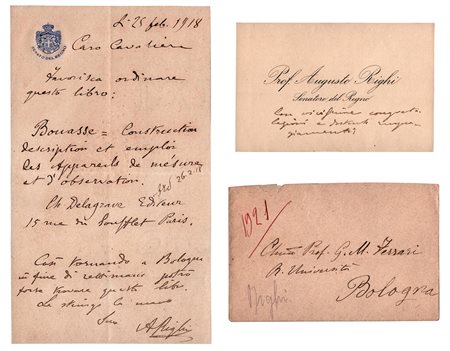 SENATO DEL REGNO
25 feb. 1918
Caro Cavaliere
Favorisca ordinare
questo libro:
Bouasse = Construction
description et emploi
des appareils de mésure
et d'observation.
26-2-18
Ch Delagrave Editeur
15 rue du Soufflet Paris.
Così tornando a Bologna
in fine di settimana potrò
forse trovare questo libro.
Le stringo la mano
Suo
A. Righi
Prof. Augusto Righi
Senatore del Regno
Con vivissime congratu-
lazioni e distinti
1921
Prof. G. M. Ferrari
R. Università
Bologna
Righi